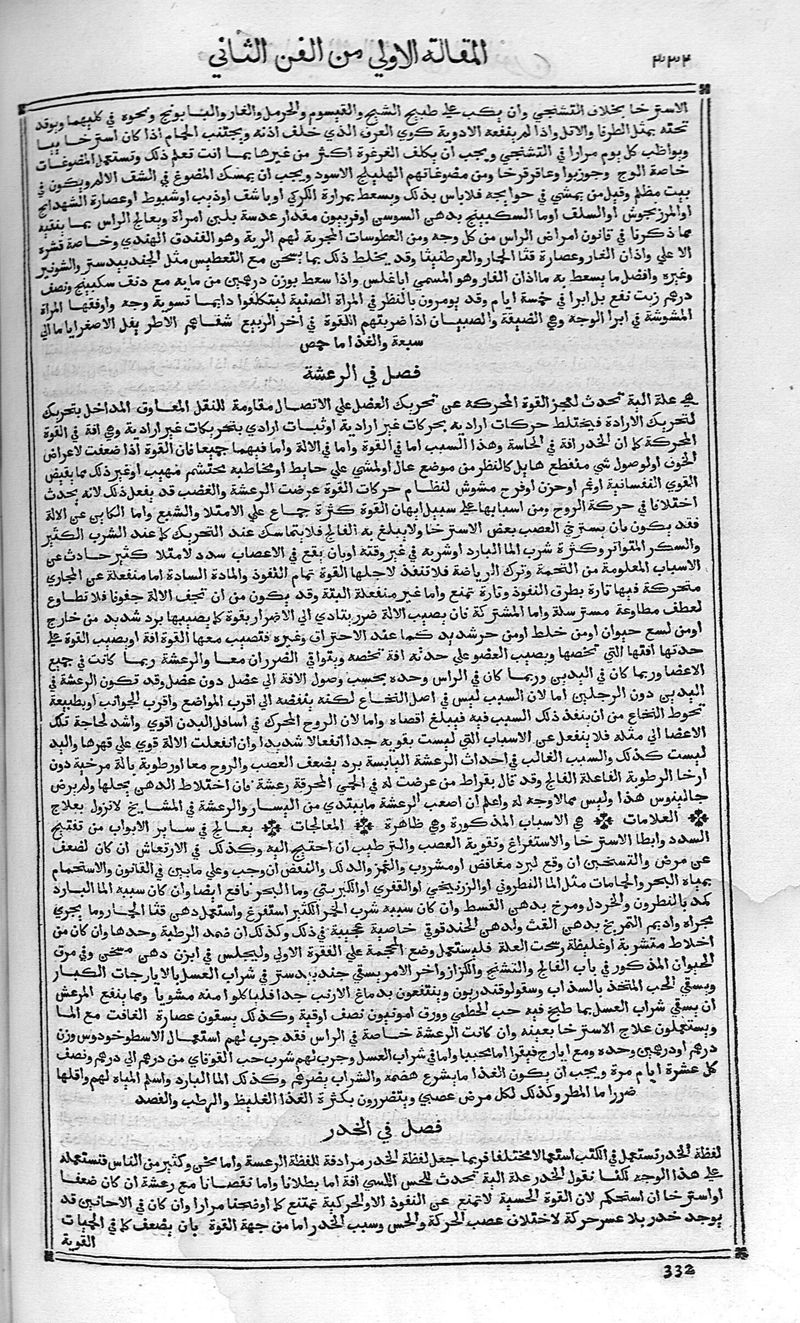 ٣٣٢ المقالة الاولي من الفن الثاني
الاسترخا بخلاف التشنجي وان يكب علي طبيخ الشيح والقيسوم والحرمل والغار والبابونج ونحوه في كليهما ويوقد
تحته بمثل الطرفا والاثل واذا لم ينفعه الادوية كوي العرق الذي خلف اذنه ويجتنب الحمام اذا كان استرخا بيا
ويواظب كل يوم مرارا في التشنجي ويجب ان يكلف الغرغرة اكثر من غيرها بما انت تعلم ذلك وتستعمل المضوغات
خاصة الوج وجوزبوا وعاقرقرحا ومن مضوغاتهم الهليلج الاسود ويجب ان يمسك المضوغ في الشق الالم ويكون في
بيت مظلم وقيل من يمشي في حوايجه فلا باس بذلك ويسعط بمرارة الكركي او باشق او ذيب او شبوط او عصارة الشهدانج
او المرزنجوش او السلق او ما السكبينج بدهن السوسن او فربيون مقدار عدسة بلبن امراة ويعالج الراس بما ينقيه
مما ذكرنا في قانون امراض الراس من كل وجه ومن العطوسات المجربة لهم الرية وهو الفندق الهندي وخاصة قشره
الاعلي واذان الفار وعصارة قثا الحمار والعرطنيثا وقد يخلط ذلك بما يسخن مع التعطيس مثل الجندبيدستر والشونيز
وغيره وافضل ما يسعط به ما اذان الفار وهو المسمي اناغلس واذا سعط بوزن درهمين من مايه مع دنف سكبينج ونصف
درهم زيت نفع بل ابرا في خمسة ايام وقد يومرون بالنظر في المراة الصينية ليتكلفوا دايما تسوية وجه واوفقها المراة
المشوشة في ابرا الوجه وهي الضيقة والصبيان اذا ضربتهم اللقوة في اخر الربيع شفاهم الاطريفل الاصغر اياما الي
سبعة والغذا ما حمص
فصل في الرعشة
هي علة الية تحدث لعجز القوة المحركة عن تحريك العضل علي الاتصال مقاومة للثقل المعاوق المداخل بتحريك
لتحريك الارادة فيختلط حركات ارادية بحركات غير ارادية او ثبات ارادي بتحريكات غير ارادية وهي افة في القوة
المحركة كما ان الخدر افة في الحاسة وهذا السبب اما في القوة واما في الالة واما فيهما جميعا فان القوة اذا ضعفت لاعراض
الخوف او لوصول شي مفظع هايل كالنظر من موضع عال او المشي علي حايط او مخاطبة محتشم مهيب او غير ذلك مما يقبض
القوي النفسانية او غم او حزن او فرح مشوش لنظام حركات القوة عرضت الرعشة والغضب قد يفعل ذلك لانه يحدث
اختلافا في حركة الروح ومن اسبابها علي سبيل ايهان القوة كثرة جماع علي الامتلا والشبع واما الكاين عن الالة
فقد يكون بان يسترخي العصب بعض الاسترخا ولا يبلغ به الفالج فلا يتماسك عند التحريك كما عند الشرب الكثير
والسكر المتواتر وكثرة شرب الما البارد او شربه في غير وقته او بان يقع في الاعصاب سدد لامتلا كثير حادث عن
الاسباب المعلومة من التخمة وترك الرياضة فلا تنفذ لاجلها القوة تمام النفوذ والمادة السادة اما منفعلة عن المجاري
متحركة فيها تارة بطرق النفوذ وتارة تمنع واما غير منفعلة البتة وقد يكون من ان تجف الالة جفوفا فلا تطاوع
لعطف مطاوعة مسترسلة واما المشتركة فان يصيب الالة ضرر يتادي الي الاضرار بقوة كما يصيبها برد شديد من خارج
او من لسع حيوان او من خلط او من حر شديد كما عند الاحتراق وغيره فتصيب معها القوة افة او يصيب القوة علي
حدتها افتها التي تخصها ويصيب العضو علي حدته افة تخصه ويتوافي الضرران معا والرعشة ربما كانت في جميع
الاعضا وربما كان في اليدين وربما كان في الراس وحده بحسب وصول الافة الي عضل دون عضل وقد تكون الرعشة في
اليدين دون الرجلين اما لان السبب ليس في اصل النخاع لكنه ينفضه الي اقرب المواضع واقرب الجوانب او بطبيعة
تحوط النخاع من ان ينفذ ذلك السبب فيه فيبلغ اقصاه واما لان الروح المحرك في اسافل البدن اقوي واشد لحاجة تلك
الاعضا الي مثله فلا ينفعل عن الاسباب التي ليست بقوية جدا انفعالا شديدا وان انفعلت الالة قوي علي قهرها واليد
ليست كذلك والسبب الغالب في احداث الرعشة اليابسة برد يضعف العصب والروح معا او رطوبة بالة مرخية دون
ارخا الرطوبة الفاعلة الفالج وقد قال بقراط من عرضت له في الحمي المحرقة رعشة فان اختلاط الذهن يحلها ولم يرض
جالينوس هذا وليس مما لا وجه له واعلم ان اصعب الرعشة ما يبتدي من اليسار والرعشة في المشايخ لا تزول بعلاج
العلامات هي الاسباب المذكورة وهي ظاهرة المعالجات يعالج في ساير الابواب من تفتيح
السدد وابطا الاسترخا والاستفراغ وتقوية العصب والترطيب ان احتيج اليه وكذلك في الارتعاش ان كان لضعف
عن مرض والتسخين ان وقع لبرد مغافص او مشروب والغمز والدلك والنفض ان وجب وعلي ما بين في القانون والاستحمام
بمياه البحر والحمامات مثل الما النطروني او الزرنيخي او القفري او الكبريتي وما البحر نافع ايضا وان كان سببه الما البارد
كمد بالنطرون والخردل ومرخ بدهن القسط وان كان سببه شرب الخمر الكثير استفرغ واستعمل دهن قثا الحمار وما يجري
مجراه واديم التمريخ بدهن القسط ولدهن الحندقوقي خاصية عجيبة في ذلك وكذلك ان ضمد الرطبة وحدها وان كان من
اخلاط متشربة او غليظة رسخت العلة فليستعمل وضع المحجمة علي الفقرة الاولي وليجلس في ابزن دهن مسخن وفي مرق
الحيوان المذكور في باب الفالج والتشنج والكزاز واخر الامر يسقي جندبيدستر في شراب العسل بالايارجات الكبار
ويسقي الحب المتخذ بالسذاب وسقولوقندريون وينتفعون بدماغ الارنب جدا فلياكلوا منه مشويا ومما ينفع المرعش
ان يسقي شراب العسل بما طبخ فيه حب الخطمي وورق امونيون نصف اوقية وكذلك يسقون عصارة الغافت مع الما
ويستعملون علاج الاسترخا بعينه وان كانت الرعشة خاصة في الراس فقد جرب لهم استعمال الاسطوخودوس وزن
درهم او درهمين وحده ومع ايارج فيقرا اما محببا واما في شراب العسل وجرب لهم شرب حب القوقاي من درهم الي درهم ونصف
كل عشرة ايام مرة ويجب ان يكون الغذا ما يشرع هضمه والشراب يضرهم وكذلك الما البارد واسلم المياه لهم واقلها
ضررا ما المطر وكذلك لكل مرض عصبي ويتضررون بكثرة الغذا الغليظ والرطب والفصد
فصل في الخدر
لفظة الخدر تستعمل في الكتب استعمالا مختلفا فربما جعل لفظة الخدر مرادفة للفظة الرعسة واما نحن وكثير من الناس فنستعمله
علي هذا الوجه لكنا نقول الخدر علة الية تحدث للحس اللمسي افة اما بطلانا واما نقصانا مع رعشة ان كان ضعفا
او استرخا ان استحكم لان القوة الحسية لا تمنع عن النفوذ الا والحركية تمتنع كما اوضحنا مرارا وان كان في الاحانين قد
يوجد خدر بلا عسر حركة لاختلاف عصب الحركة والحس وسبب الخدر اما من جهة القوة بان يضعف كما في الحميات
القوية
332